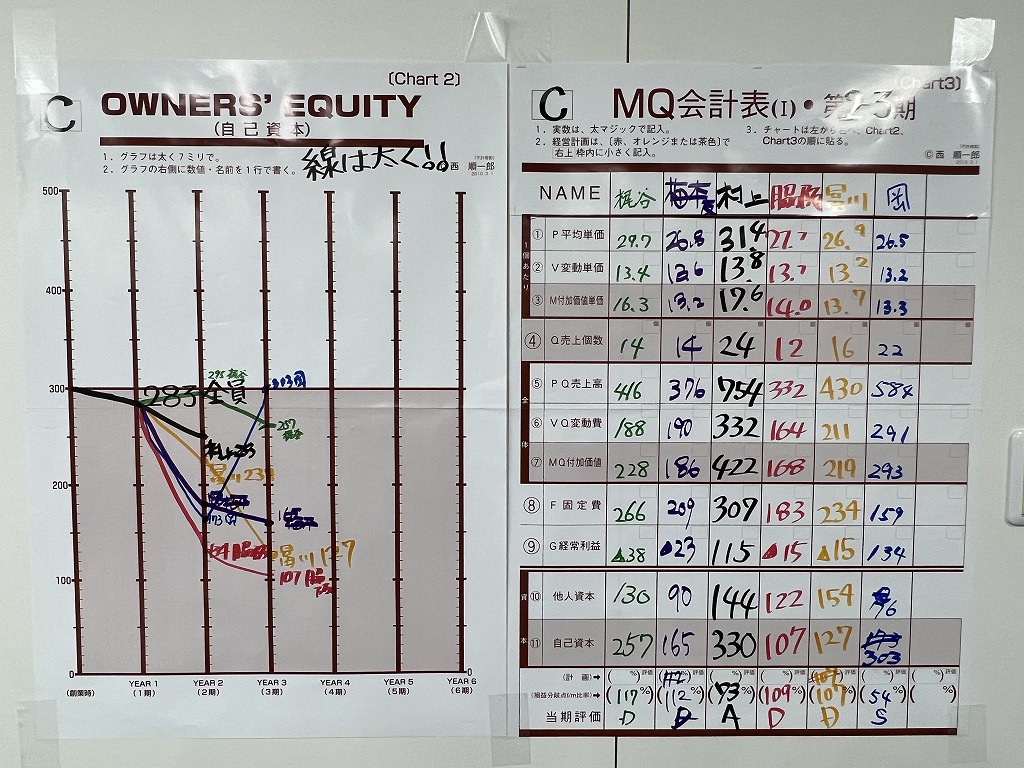 C
(Chart 2)
OWNERS' EQUITY
(自己資本)
1. グラフは太く7ミリで。
2. グラフの右側に数値・名前を1行で書く。
線は太く!!
西 順一郎
500
400
300
200
100
0
283 全員
295 梶谷
303 岡
257 梶谷
村上 233
昌川 233
173 岡
165
昌川 127
107 脇阪
0
(創業時)
YEAR 1 (1期)
YEAR 2 (2期)
YEAR 3 (3期)
YEAR 4 (4期)
YEAR 5 (5期)
YEAR 6 (6期)
C
(Chart3)
MQ会計表(I)・第2-3期
1. 実数は、太マジックで記入。
2. 経営計画は、〔赤、オレンジまたは茶色〕で
右上枠内に小さく記入。
3. チャートは左から右へ、Chart2、
Chart3の順に貼る。
© 西 順一郎
NAME 梶谷 梅本 村上 脇阪 昌川 岡
1個あたり
① P平均単価 29.7 26.8 31.4 27.7 26.9 26.5
② V変動単価 13.4 13.6 13.8 13.7 13.2 13.2
③ M付加価値単価 16.3 13.2 17.6 14.0 13.7 13.3
④ Q売上個数 14 14 24 12 16 22
全体
⑤ PQ売上高 416 376 754 332 430 584
⑥ VQ変動費 188 190 332 164 211 291
⑦ MQ付加価値 228 186 422 168 219 293
⑧ F固定費 266 209 307 183 234 159
⑨ G経常利益 ▲38 ▲23 115 ▲15 ▲15 134
資本
⑩ 他人資本 130 90 144 122 154 96
⑪ 自己資本 257 165 330 107 127 303
(計 画)→ ( %)評価 ( %)評価 ( %)評価 ( %)評価 ( %)評価 ( %)評価 ( %)評価
(損益分岐点f/m比率)→ (117%) (112%) (73%) (109%) (107%) (54%) ( %)
当期評価 D D A D D S